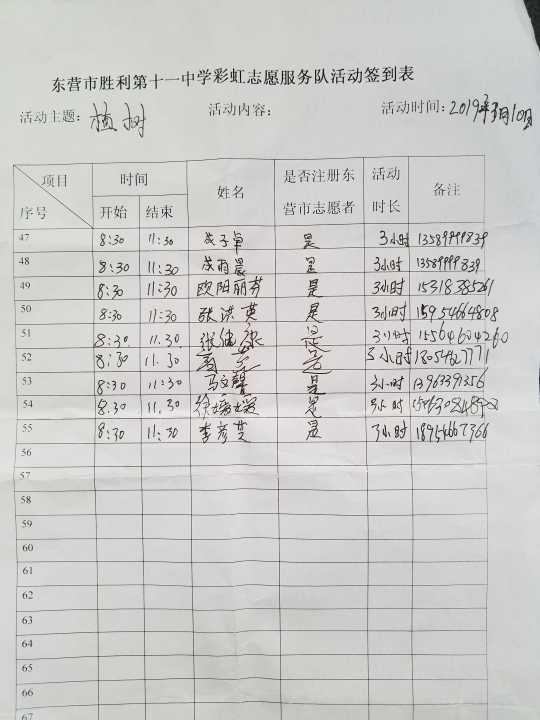 东营市胜利第十一中学彩虹志愿服务队活动签到表
活动主题：植树 活动内容： 活动时间：2019年3月10日
项目 序号 时间 姓名 是否注册东营市志愿者 活动时长 备注
开始 结束
47 8:30 11:30 是 3小时 13589999839
48 8:30 11:30 是 3小时 13589999839
49 8:30 11:30 欧阳丽芬 是 3小时 15318385261
50 8:30 11:30 张洪英 是 3小时 15954664808
51 8:30 11.30 是 3小时 15564604260
52 8:30 11.30 是 3小时
53 8:30 11:30 是 3小时
54 8.30 11.30 是 3小时
55 8:30 11:30 李彦 是 3小时
56
57
58
59
60
61
62
63
64
65
66
67